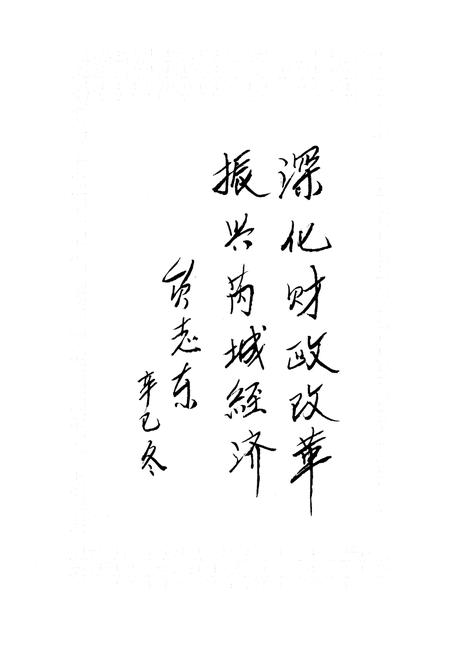 深化财政改革
振兴芮城经济
贠志东
辛巳冬